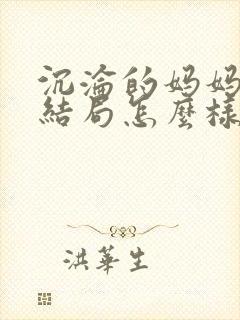 沉淪的妈妈
結局怎麼樣
洪華生